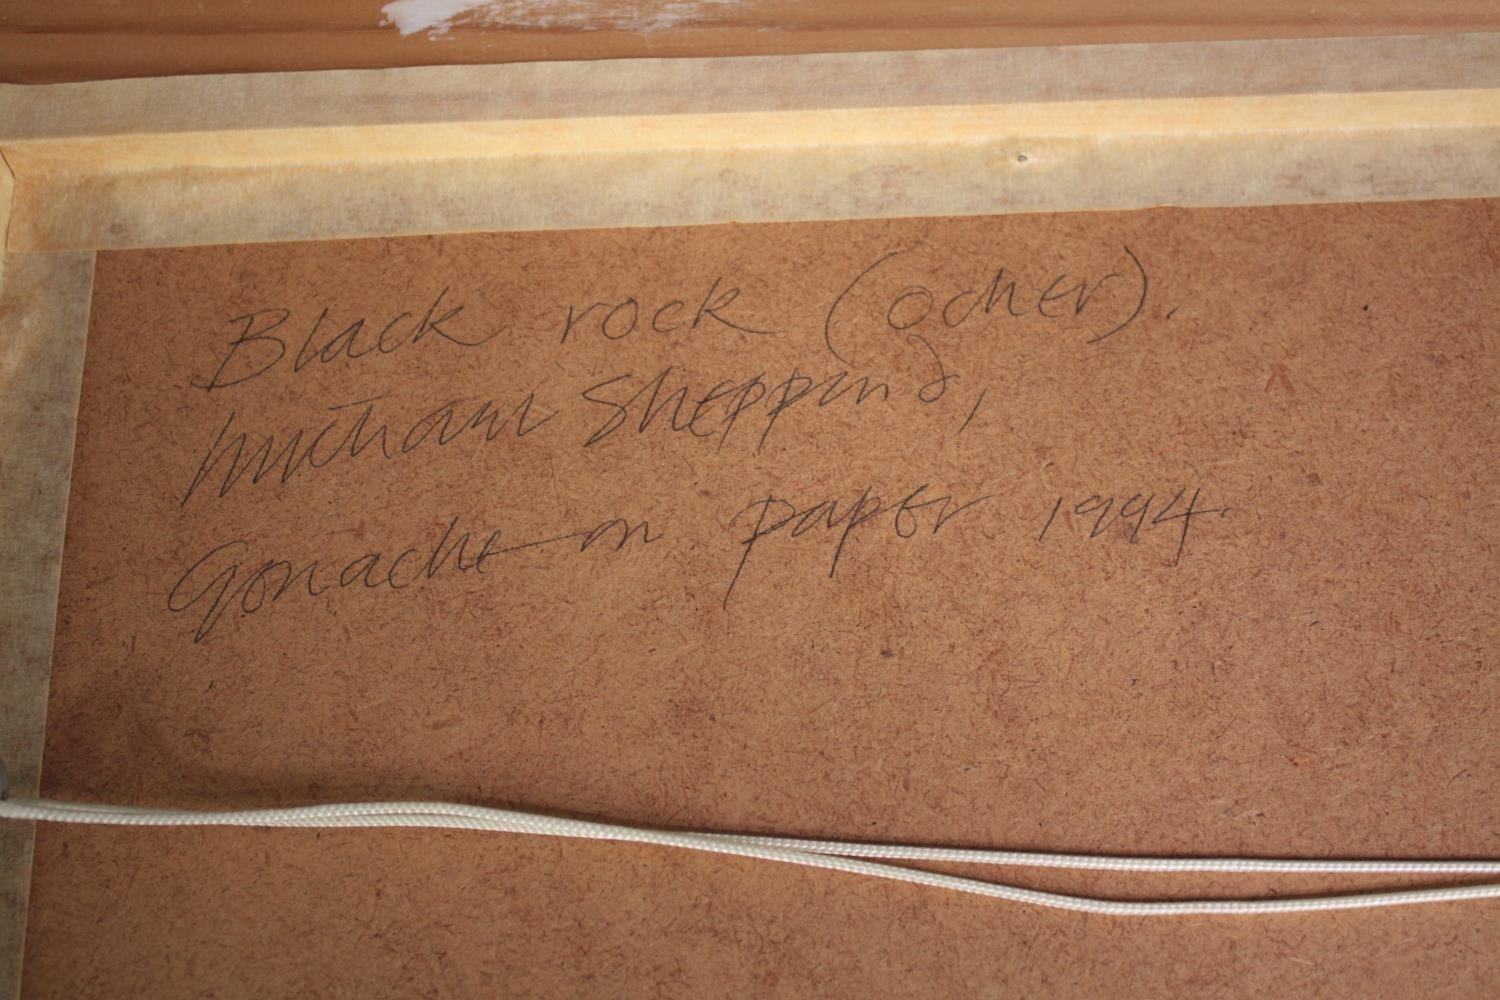 Black rock (ocher).
Michael Shepping,
Gouache on paper 1994.